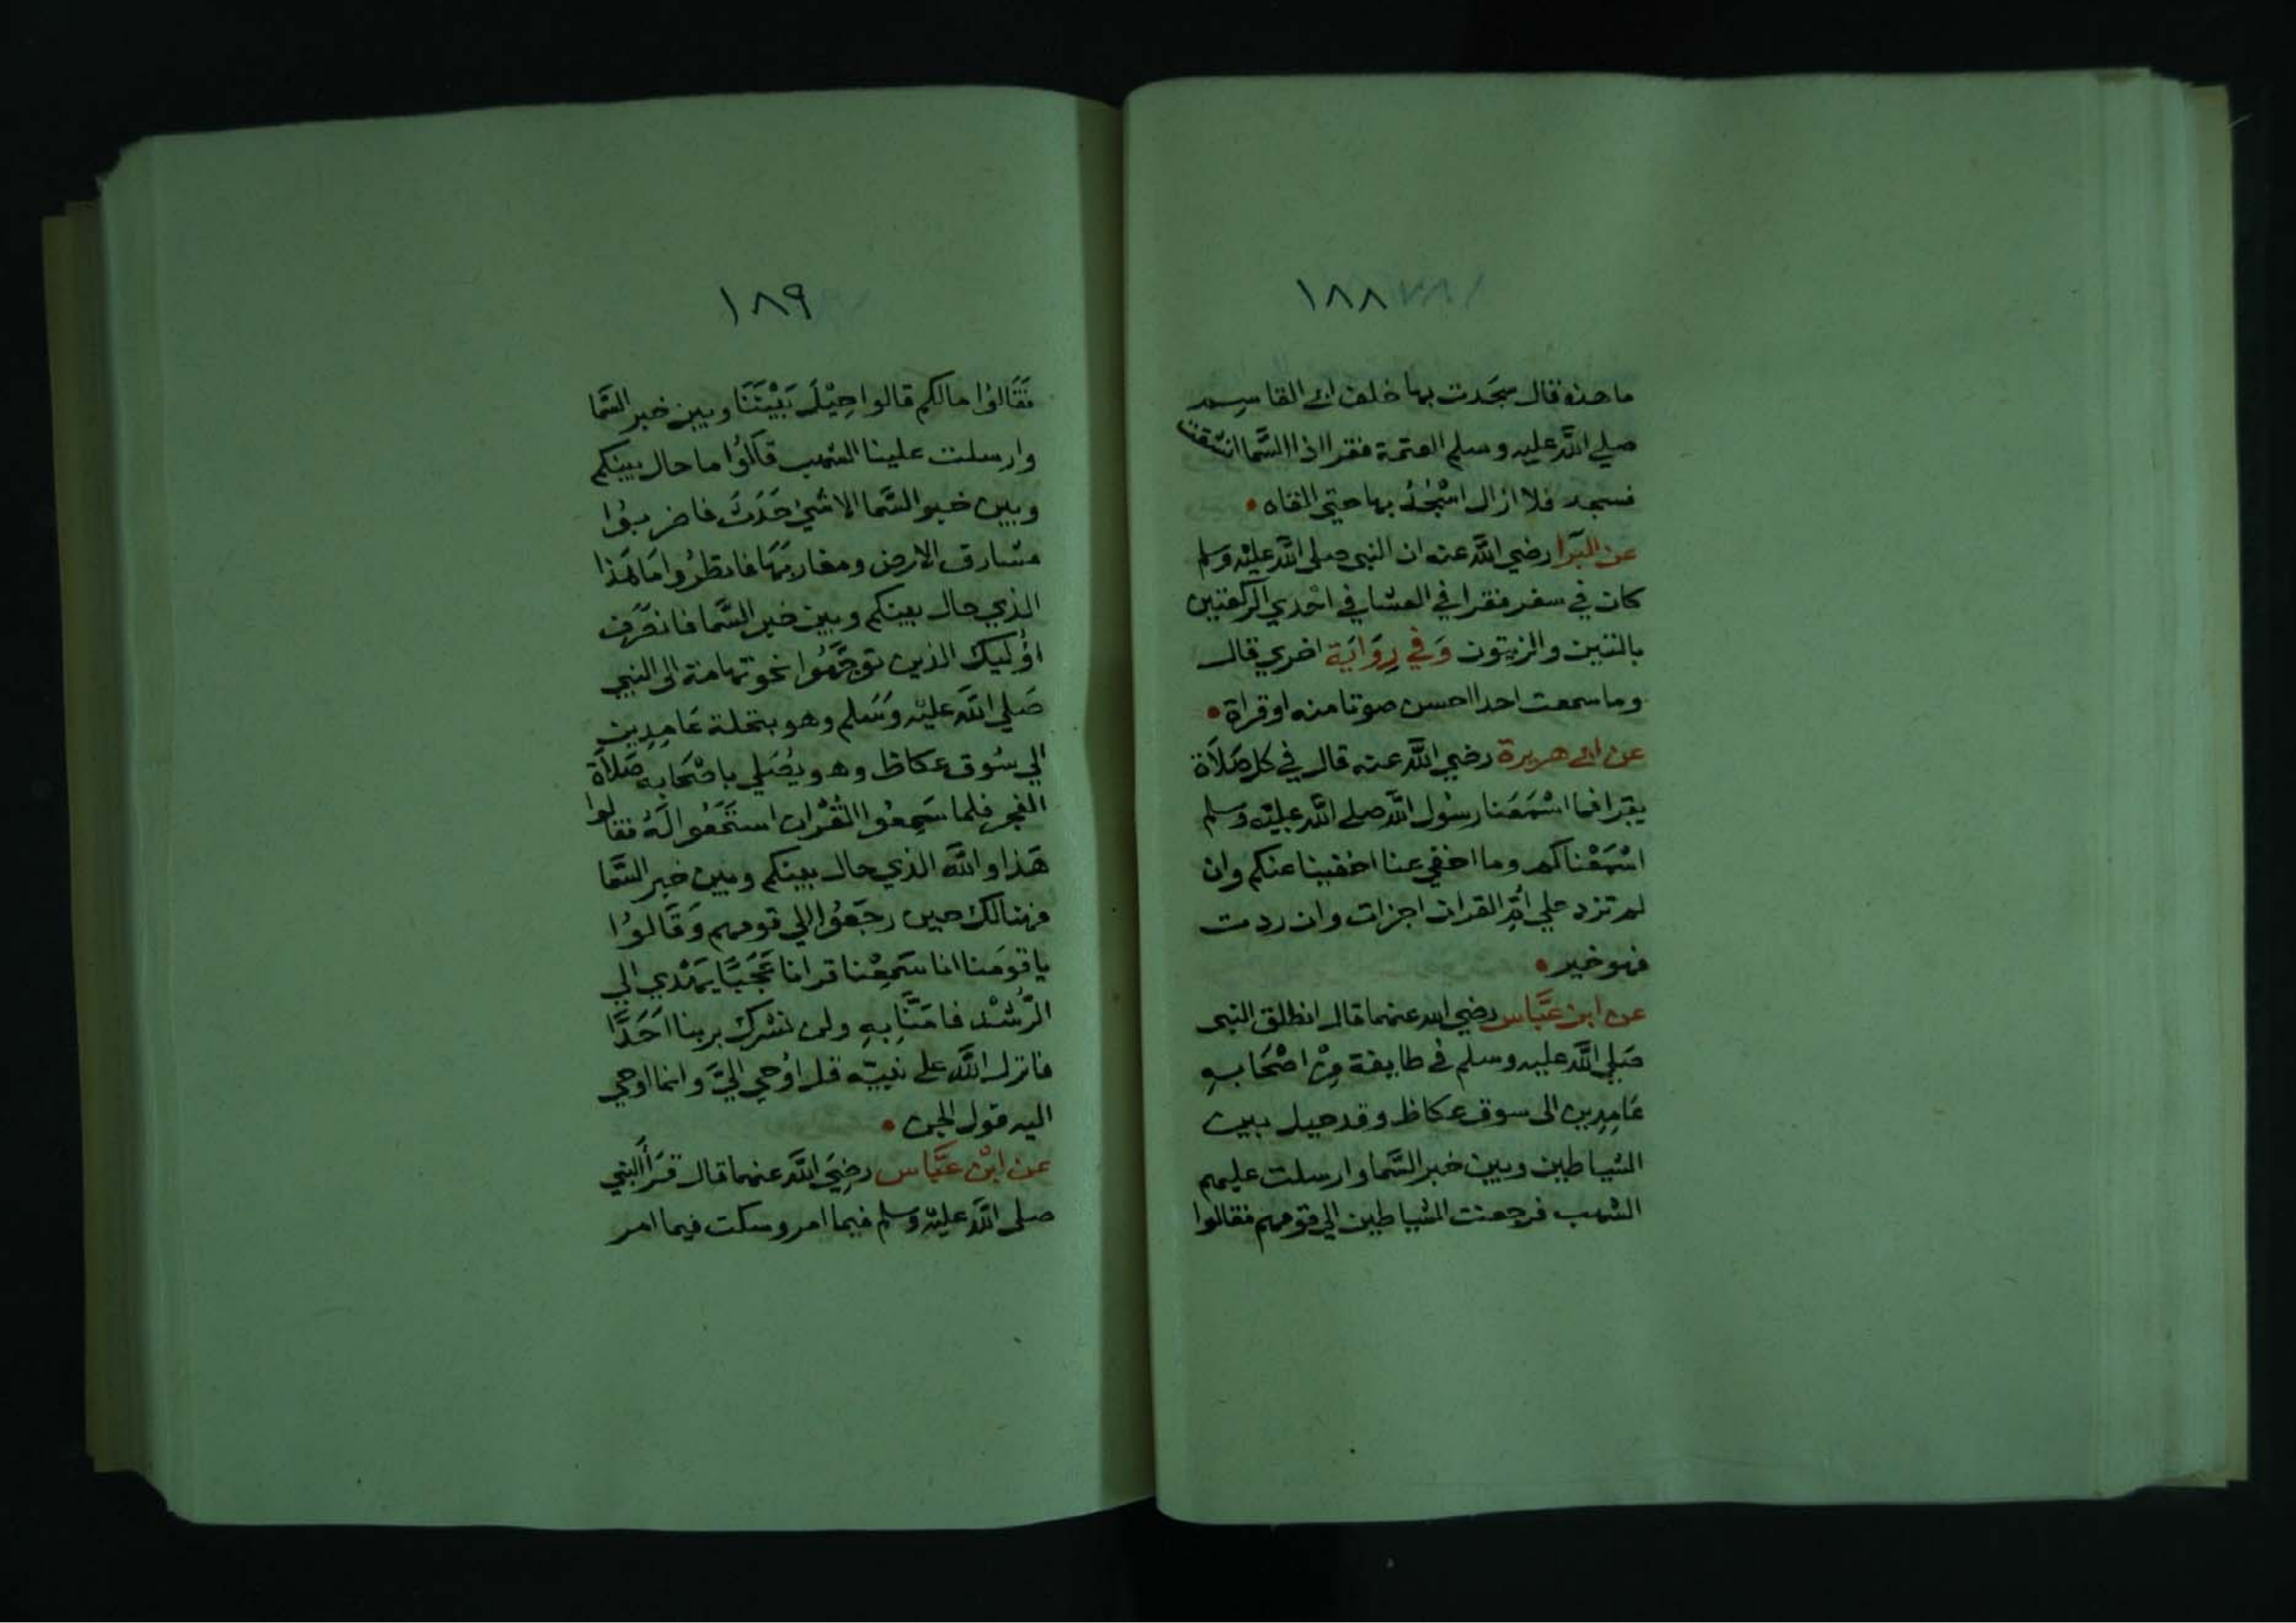 ١٨٨
ما هذه قال سَجَدت بها خلف ابي القاسم
صلي اللَّه عليه وسلم العتمة فقرا اذا السَّما انشقت
فسجد فلا ازال اسْجُدُ بها حتي القاه •
عن البَرا رضي اللَّه عنه ان النبي صلي اللَّه عليْه وسلم
كان في سفر فقرا في العشا في احْدي الركعتين
بالتين والزيتون وَفي رِوَايَة اخري قال
وما سمعت احدا احسن صوتا منه او قراة •
عن ابي هريرة رضي اللَّه عنه قال في كل صَلاَة
يقرا فما اسْمَعَنا رسُول اللَّه صلي اللَّه عليْه وسلم
اسْمَعْناكم وما اخفي عنا اخفينا عنكم وان
لم تزد علي امِّ القران اجزات وان زدت
فهو خير •
عن ابن عَبَّاس رضي الله عنهما قال انطلق النبي
صَلي اللَّه عليه وسلم في طايفة مِنْ اصْحَابهِ
عَامِدِين الي سوق عكاظ وقد حيل بين
الشياطين وبين خبر السَّما وارسلت عليهم
الشهب فرجعت الشياطين الي قومهم فقالوا
١٨٩
فَقَالوُا مالكم قالوا حِيْلَ بَيْنَنَا وبين خبر السَّما
وارسلت علينا الشهب قَالوُا ما حال بينكم
وبين خبر السَّما الا شيْ حَدَثَ فاضربوُا
مشارق الارض ومغاربَهَا فانظرُوا مَا هَذا
الذي حال بينكم وبين خبر السَّما فانصَرَف
اوُليك الذين توجَّهُوا نحو تهامة الي النبي
صَلي اللَّه عليْه وَسَلم وهو بنخلة عَامِدِين
الي سُوق عكاظ وهو يُصَلي باصْحَابه صَلاَة
الفجر فلما سَمِعُوا القُرْان اسْتَمَعُوا لَهُ فقالوا
هَذا واللَّه الذي حال بينكم وبين خبر السَّما
فهنالك حين رجَعُوا الي قومهم وَقَالوُا
يا قومَنا انا سَمِعْنا قرانا عَجَبًا يَهْدي الي
الرُّشْد فامَنَّا بِهِ ولن نشرك بربنا اَحَدًا
فانزل اللَّه علي نبيّه قل اوُحي اليَّ وانما اوحي
اليه قول الجن •
عن ابْن عَبَّاس رضِيَ اللَّه عنهما قال قرَأَ النبي
صلي اللَّه عليْه وسلم فيما امر وسكت فيما امر